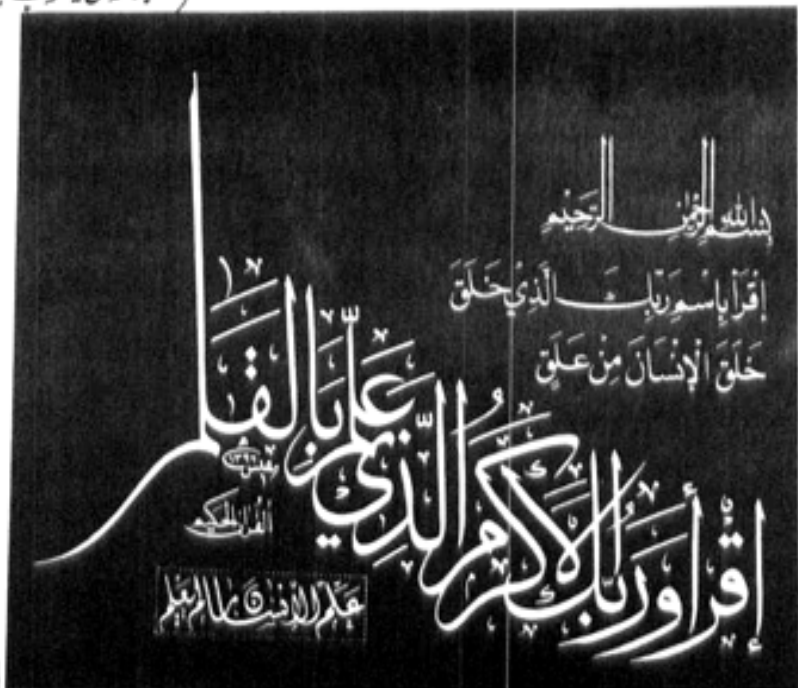 بسم الله الرحمن الرحيم
إقرأ باسم ربك الذي خلق
خلق الإنسان من علق
إقرأ وربك الأكرم الذي علم بالقلم
١٣٩٦
القرآن الحكيم
علم الإنسان ما لم يعلم